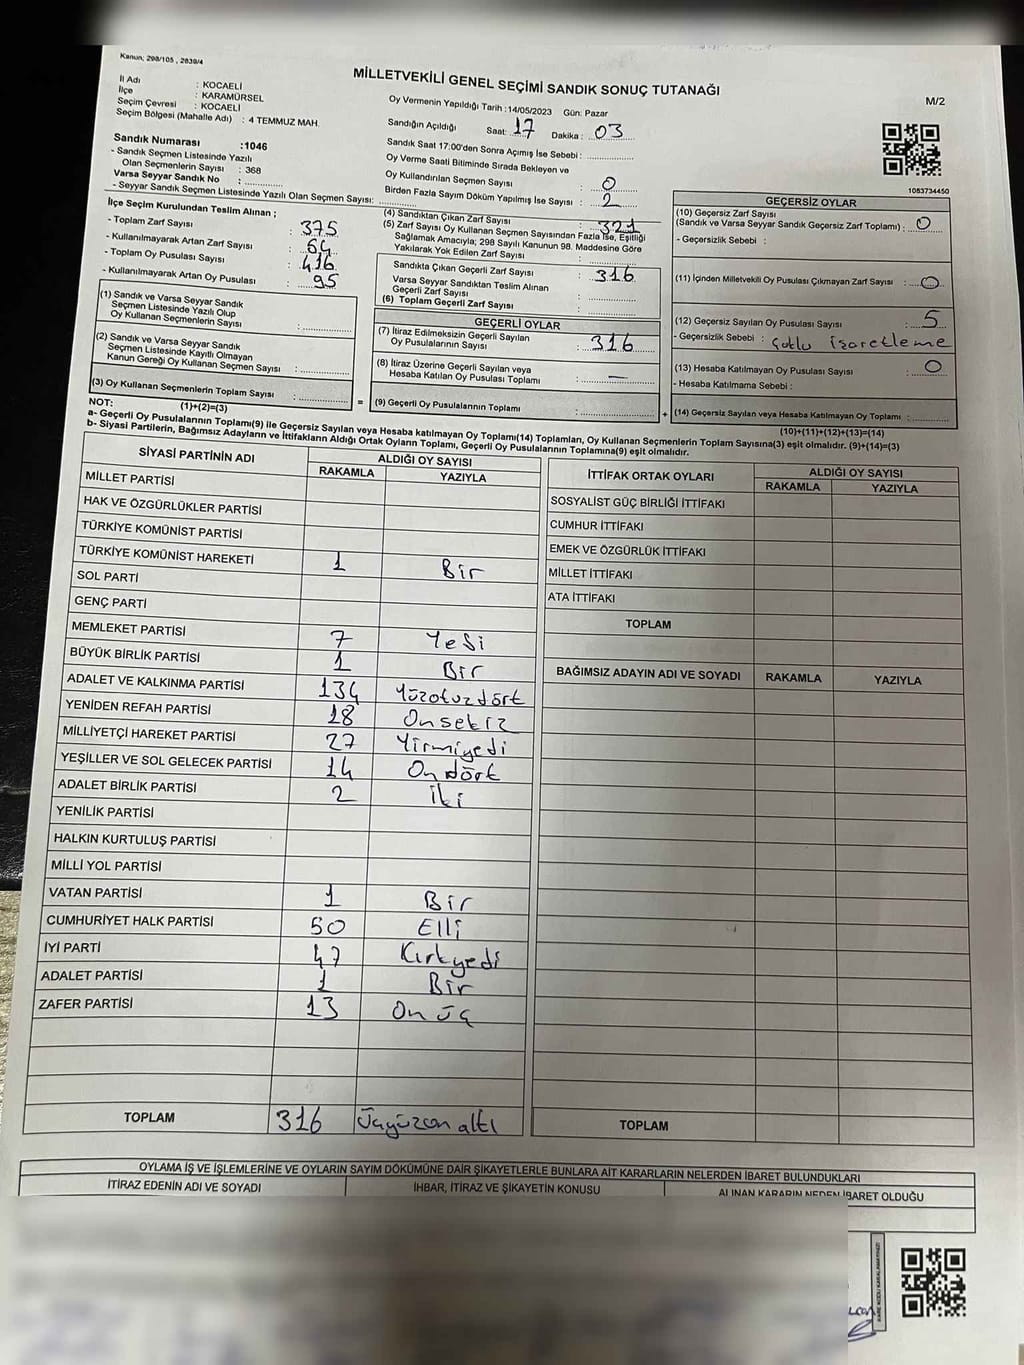 Kanun; 298/105 , 2839/4
MİLLETVEKİLİ GENEL SEÇİMİ SANDIK SONUÇ TUTANAĞI
M/2
İl Adı : KOCAELİ
İlçe : KARAMÜRSEL
Seçim Çevresi : KOCAELİ
Seçim Bölgesi (Mahalle Adı) : 4 TEMMUZ MAH.
Sandık Numarası :1046
- Sandık Seçmen Listesinde Yazılı
Olan Seçmenlerin Sayısı : 368
Varsa Seyyar Sandık No :
- Seyyar Sandık Seçmen Listesinde Yazılı Olan Seçmen Sayısı:
Oy Vermenin Yapıldığı Tarih : 14/05/2023 Gün: Pazar
Sandığın Açıldığı Saat: 17 Dakika : 03
Sandık Saat 17:00'den Sonra Açımış İse Sebebi :
Oy Verme Saati Bitiminde Sırada Bekleyen ve
Oy Kullandırılan Seçmen Sayısı : 0
Birden Fazla Sayım Döküm Yapılmış İse Sayısı : 2
1083734450
İlçe Seçim Kurulundan Teslim Alınan ;
- Toplam Zarf Sayısı : 375
- Kullanılmayarak Artan Zarf Sayısı : 64
- Toplam Oy Pusulası Sayısı : 416
- Kullanılmayarak Artan Oy Pusulası : 95
(1) Sandık ve Varsa Seyyar Sandık
Seçmen Listesinde Yazılı Olup
Oy Kullanan Seçmenlerin Sayısı :
(2) Sandık ve Varsa Seyyar Sandık
Seçmen Listesinde Kayıtlı Olmayan
Kanun Gereği Oy Kullanan Seçmen Sayısı :
(3) Oy Kullanan Seçmenlerin Toplam Sayısı :
(1)+(2)=(3)
(4) Sandıktan Çıkan Zarf Sayısı : 321
(5) Zarf Sayısı Oy Kullanan Seçmen Sayısından Fazla İse, Eşitliği
Sağlamak Amacıyla; 298 Sayılı Kanunun 98. Maddesine Göre
Yakılarak Yok Edilen Zarf Sayısı :
Sandıkta Çıkan Geçerli Zarf Sayısı : 316
Varsa Seyyar Sandıktan Teslim Alınan
Geçerli Zarf Sayısı :
(6) Toplam Geçerli Zarf Sayısı :
GEÇERLİ OYLAR
(7) İtiraz Edilmeksizin Geçerli Sayılan
Oy Pusulalarının Sayısı : 316
(8) İtiraz Üzerine Geçerli Sayılan veya
Hesaba Katılan Oy Pusulası Toplamı : —
= (9) Geçerli Oy Pusulalarının Toplamı :
GEÇERSİZ OYLAR
(10) Geçersiz Zarf Sayısı
(Sandık ve Varsa Seyyar Sandık Geçersiz Zarf Toplamı) : 0
- Geçersizlik Sebebi :
(11) İçinden Milletvekili Oy Pusulası Çıkmayan Zarf Sayısı : 0
(12) Geçersiz Sayılan Oy Pusulası Sayısı : 5
- Geçersizlik Sebebi : Çoklu işaretleme
(13) Hesaba Katılmayan Oy Pusulası Sayısı : 0
- Hesaba Katılmama Sebebi :
+ (14) Geçersiz Sayılan veya Hesaba Katılmayan Oy Toplamı :
(10)+(11)+(12)+(13)=(14)
NOT:
a- Geçerli Oy Pusulalarının Toplamı(9) ile Geçersiz Sayılan veya Hesaba katılmayan Oy Toplamı(14) Toplamları, Oy Kullanan Seçmenlerin Toplam Sayısına(3) eşit olmalıdır. (9)+(14)=(3)
b- Siyasi Partilerin, Bağımsız Adayların ve İttifakların Aldığı Ortak Oyların Toplamı, Geçerli Oy Pusulalarının Toplamına(9) eşit olmalıdır.
SİYASİ PARTİNİN ADI ALDIĞI OY SAYISI
RAKAMLA YAZIYLA
MİLLET PARTİSİ
HAK VE ÖZGÜRLÜKLER PARTİSİ
TÜRKİYE KOMÜNİST PARTİSİ
TÜRKİYE KOMÜNİST HAREKETİ 1 Bir
SOL PARTİ
GENÇ PARTİ
MEMLEKET PARTİSİ 7 Yedi
BÜYÜK BİRLİK PARTİSİ 1 Bir
ADALET VE KALKINMA PARTİSİ 134 Yüzotuzdört
YENİDEN REFAH PARTİSİ 18 Onsekiz
MİLLİYETÇİ HAREKET PARTİSİ 27 Yirmiyedi
YEŞİLLER VE SOL GELECEK PARTİSİ 14 Ondört
ADALET BİRLİK PARTİSİ 2 İki
YENİLİK PARTİSİ
HALKIN KURTULUŞ PARTİSİ
MİLLİ YOL PARTİSİ
VATAN PARTİSİ 1 Bir
CUMHURİYET HALK PARTİSİ 50 Elli
İYİ PARTİ 47 Kırkyedi
ADALET PARTİSİ 1 Bir
ZAFER PARTİSİ 13 On üç
TOPLAM 316 Üçyüzon altı
İTTİFAK ORTAK OYLARI ALDIĞI OY SAYISI
RAKAMLA YAZIYLA
SOSYALİST GÜÇ BİRLİĞİ İTTİFAKI
CUMHUR İTTİFAKI
EMEK VE ÖZGÜRLÜK İTTİFAKI
MİLLET İTTİFAKI
ATA İTTİFAKI
TOPLAM
BAĞIMSIZ ADAYIN ADI VE SOYADI RAKAMLA YAZIYLA
TOPLAM
OYLAMA İŞ VE İŞLEMLERİNE VE OYLARIN SAYIM DÖKÜMÜNE DAİR ŞİKAYETLERLE BUNLARA AİT KARARLARIN NELERDEN İBARET BULUNDUKLARI
İTİRAZ EDENİN ADI VE SOYADI İHBAR, İTİRAZ VE ŞİKAYETİN KONUSU ALINAN KARARIN NEDEN İBARET OLDUĞU